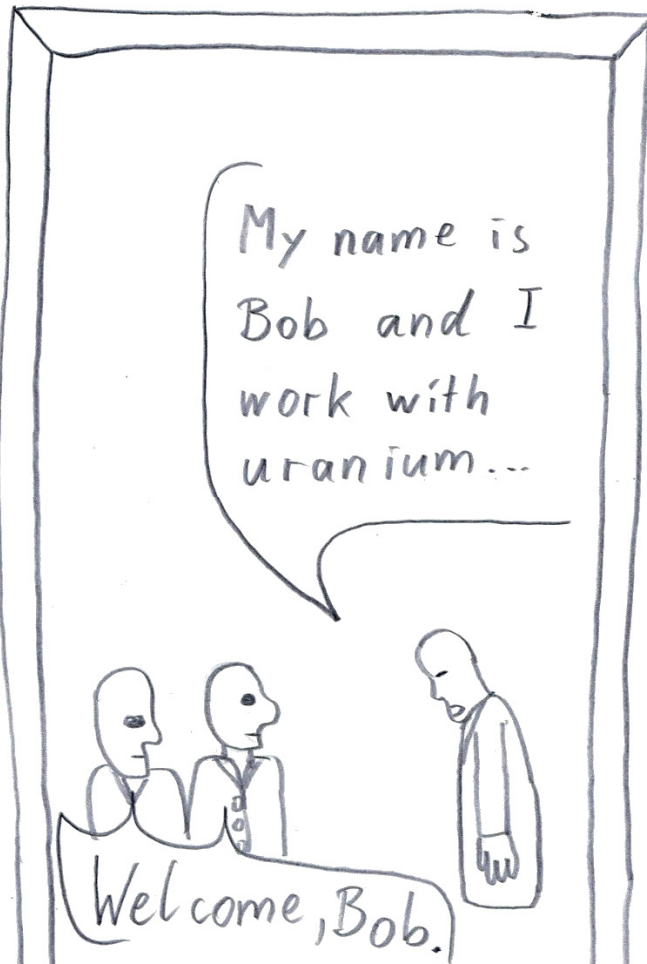 My name is
Bob and I
work with
uranium...
Welcome, Bob.